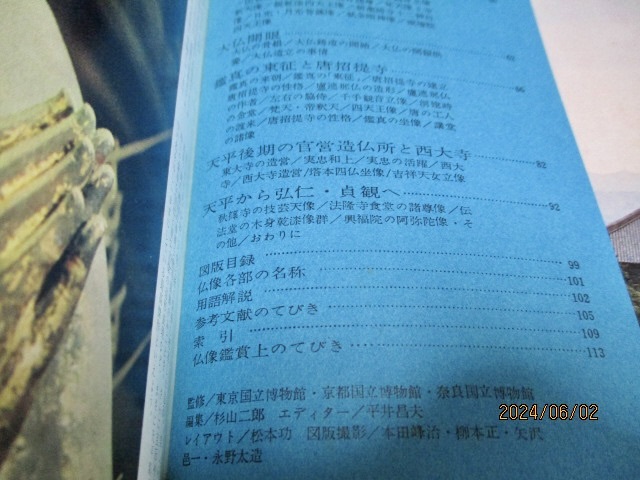 大仏開眼
愛/大仏造立の事情
鑑真の東征と唐招提寺 66
鑑真の来朝/鑑真の「東征」/唐招提寺の建立
唐招提寺の性格/盧遮那仏の造形/盧遮那仏
の作者/左右の脇侍/千手観音立像/創建時
の金堂/梵天・帝釈天/四天王像/唐の工人
の渡来/唐招提寺の性格/鑑真の坐像/講堂
の諸像
天平後期の官営造仏所と西大寺 82
東大寺の造営/実忠和上/実忠の活躍/西大
寺/西大寺造営/塔本四仏坐像/吉祥天女立像
天平から弘仁・貞観へ 92
秋篠寺の技芸天像/法隆寺食堂の諸尊像/伝
法堂の木身乾漆像群/興福院の阿弥陀像・そ
の他/おわりに
図版目録 99
仏像各部の名称 101
用語解説 102
参考文献のてびき 105
索引 109
仏像鑑賞上のてびき 113
監修/東京国立博物館・京都国立博物館・奈良国立博物館
編集/杉山二郎 エディター/平井昌夫
レイアウト/松本功 図版撮影/本田峰治・柳本正・矢沢
邑一・永野太造
2024/06/02